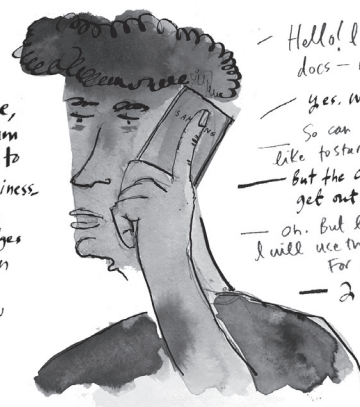 e,
am
to
iness-
ges
n
SAM NG
Hello! I
docs –
yes. w
So can
like to star
But the c
get out
– oh. But I
I will use th
For
– 2